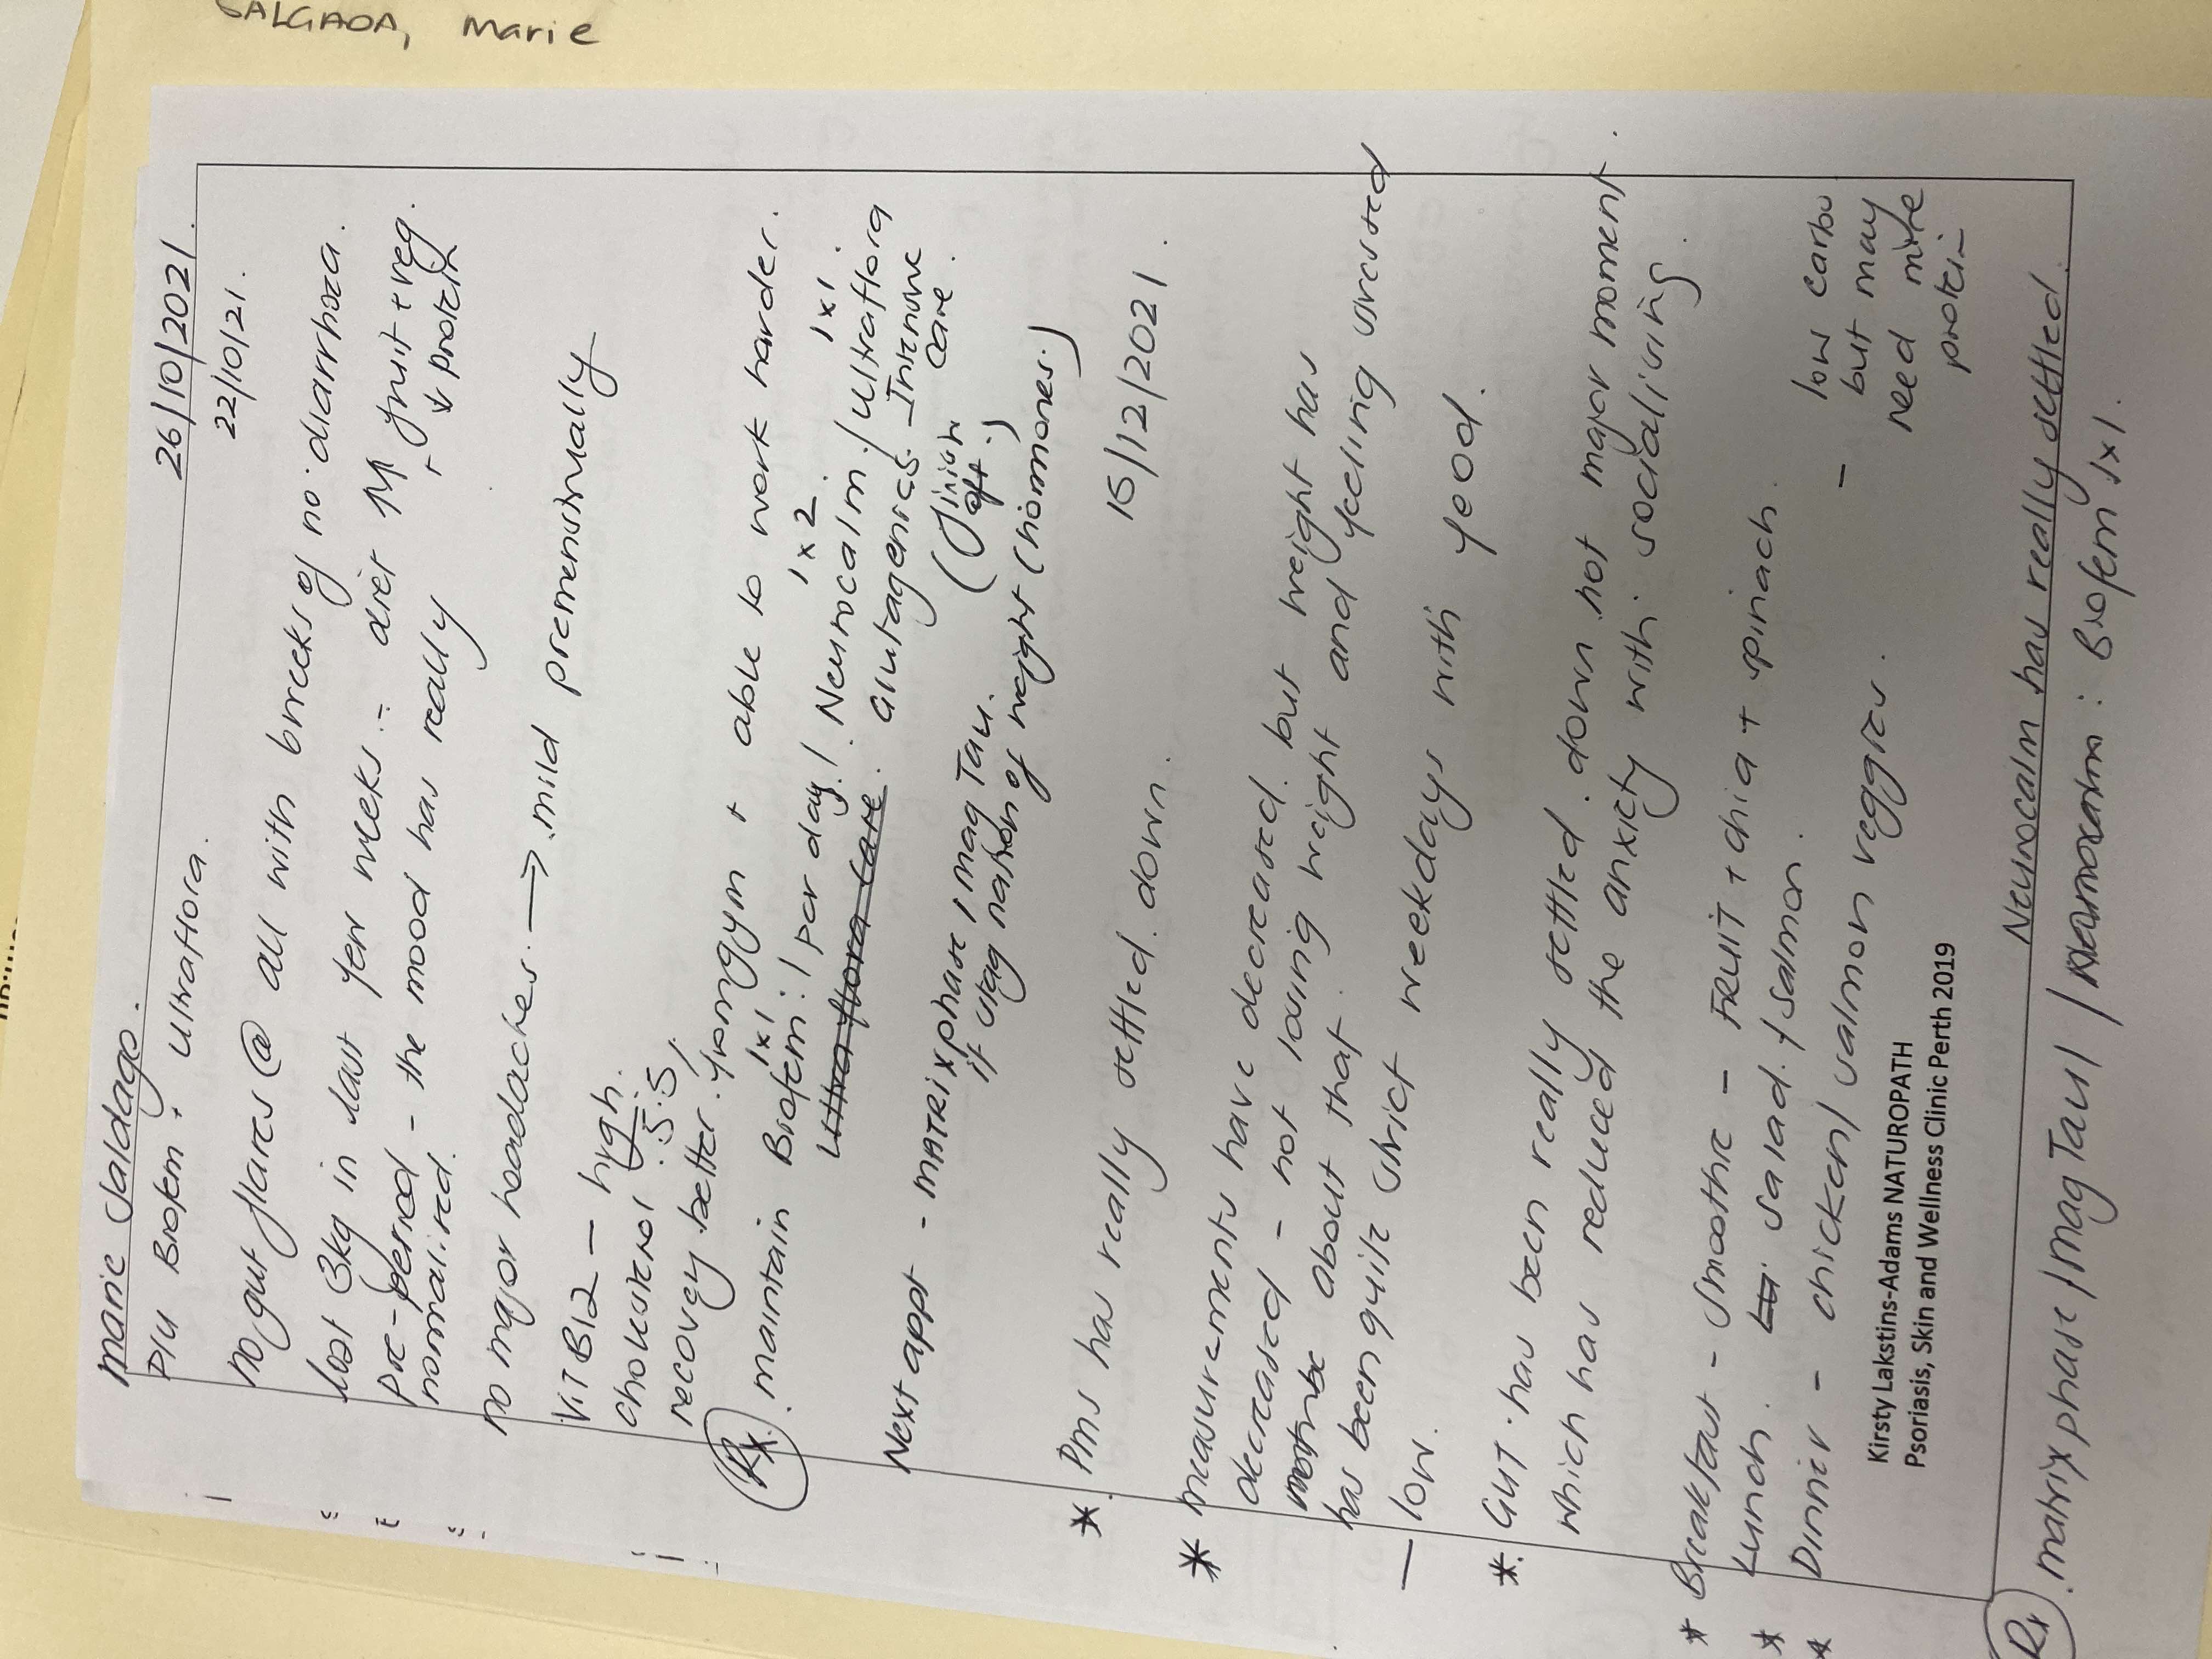 SALGAOA, Marie
Marie Saldago. 26/10/2021.
P/U Biofem + Ultraflora. 22/10/21.
No gut flares @ all with breeks of no diarrhoea.
lost 3kg in last few weeks - diet ↑↑ fruit + veg.
↓ protein
Pre-period - the mood has really
normalised.
no major headaches. → mild premenstrually
VIT B12 - high.
cholesterol 5.5
recovery better from gym + able to work harder.
Rx. maintain Biofem: 1 per day / Neurocalm / Ultraflora
1x1 1x2 1x1
Ultra flora care. Glutagenics - Intensive care.
(finish off.)
Next appt - MATRIX phase / mag Taur.
if stagnation of weight (hormones.)
* Pms has really settled down. 15/12/2021.
* measurements have decreased but weight has
decreased - not losing weight and feeling stressed
about that.
has been quite strict weekdays with food.
— low.
* GUT has been really settled down not major moment.
which has reduced the anxiety with socialising.
* Breakfast - Smoothie - FRUIT + chia + spinach.
* Lunch. salad + salmon.
* Dinner - chicken/salmon veggies.
- low carbo
but may
need more
protein
Kirsty Lakstins-Adams NATUROPATH
Psoriasis, Skin and Wellness Clinic Perth 2019
Neurocalm has really settled.
Rx. matrix phase / mag Taur / Neurocalm : Biofem 1x1.